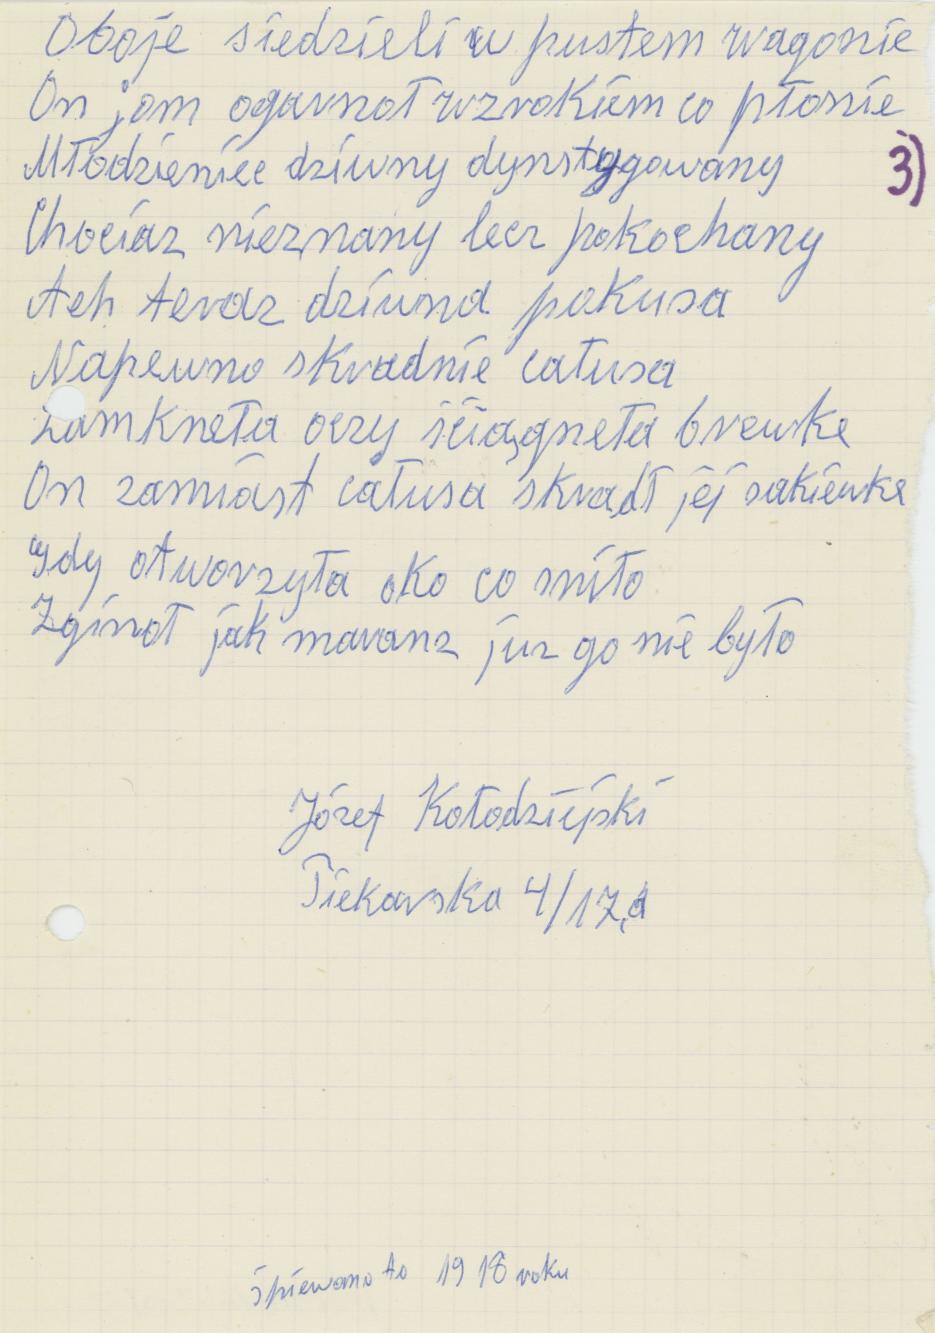 Oboje siedzieli w pustem wagonie
On jom ogarnoł wzrokiem co płonie
Młodzieniec dziwny dynstygowany
3)
Chociaz nieznany lecz pokochany
Ach teraz dziwna pokusa
Napewno skradnie całusa
Zamkneła oczy ściągneła brewke
On zamiast całusa skradł jej sakiewke
gdy otworzyła oko co sniło
Zginoł jak maranz juz go nie było
Józef Kołodziejski
Piekarska 4/17
śpiewano to 1918 roku